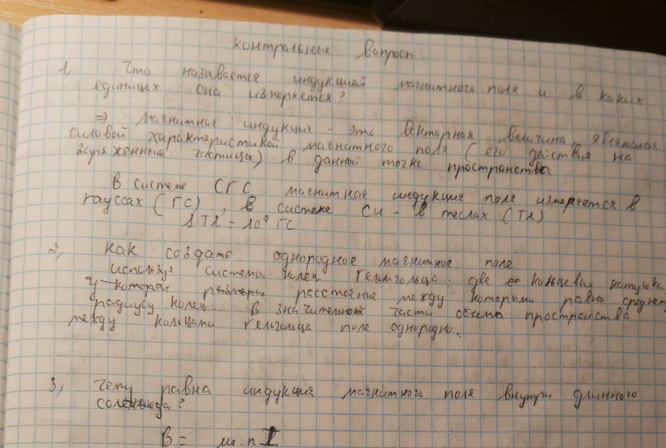 контрольные вапросы
1, Что называется индукцией магнитного поля и в каких
единицах она измеряется?
⇒ Магнитная индукция - это векторная величина, являющая
силовой характеристикой магнитного поля (его действия на
заряженные частицы) в данной точке пространства
В системе СГС магнитная индукция поля измеряется в
гауссах (ГС), в системе Си - в теслах (Тл)
1 Тл = 10⁴ ГС
2, как создать однородное магнитное поле
используя система колец Гельмгольца: две ее кольцевые катушки
у которой размеры расстояние между которыми равна среднему
радиусу колец. В значительной части объема пространства
между кольцами гельмголца поле однородно.
3, Чему равна индукция магнитного поля внутри длинного
соленоида?
B = μ₀ n I